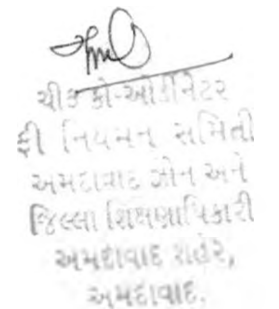 ચીફ કો-ઓર્ડીનેટર
ફી નિયમન સમિતી
અમદાવાદ ઝોન અને
જિલ્લા શિક્ષણાધિકારી
અમદાવાદ શહેર,
અમદાવાદ.